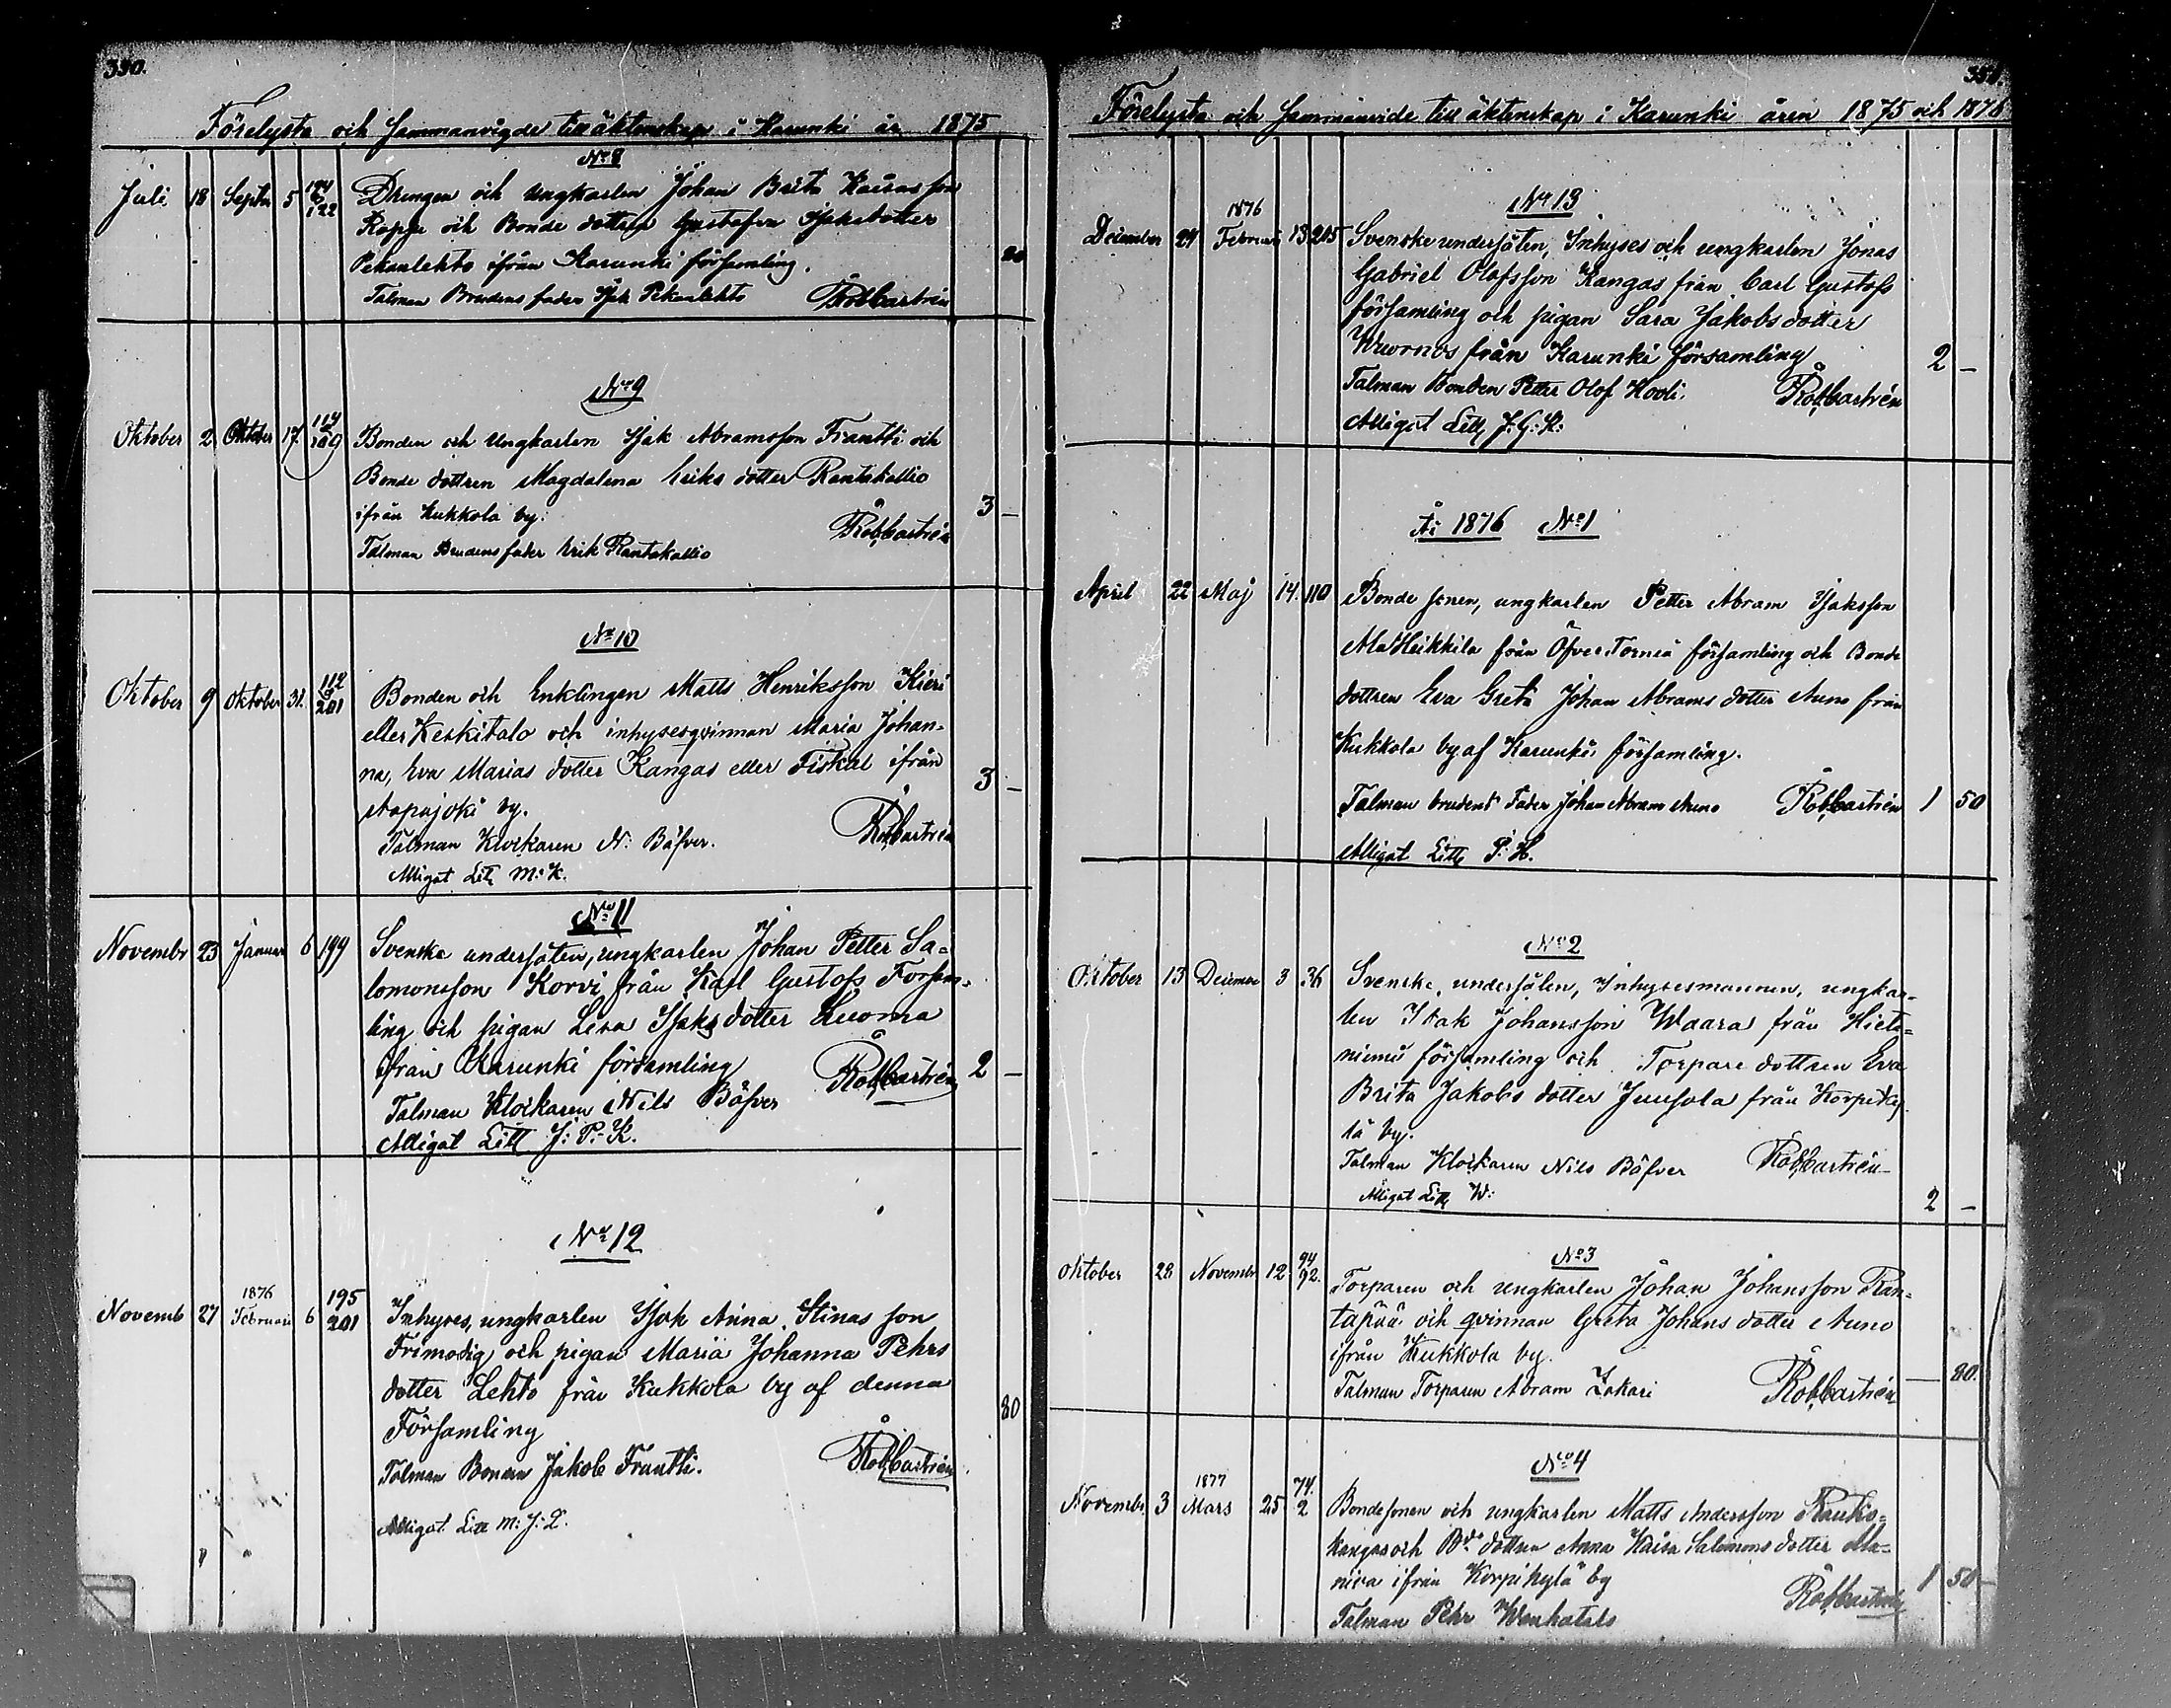 350.
Förelysta och Sammanvigde till äktenskap i Karunki år 1875
No 8
Juli 18 Septbr 5 122 Drengen och ungkarlen Johan Brita Kaisas son
Ropja och Bonde dottren Gustafva Isaksdotter
Pekanlehto ifrån Karunki församling.
Talman Brudens fader Isak Pekanlehto Rob Castrén
No 9
Oktober 2 Oktober 17 114 109 Bonden och Ungkarlen Isak Abramsson Frantti och
Bonde dottren Magdalena Eriks dotter Rantakallio
ifrån Kukkola by: 3 –
Talman Brudens fader Erik Rantakallio Rob Castrén
No 10
Oktober 9 Oktober 31. 112 & 201 Bonden och Enklingen Matts Henriksson Kieri
eller Keskitalo och inhysesqvinnan Maria Johan-
na, Eva Marias dotter Kangas eller Fiskal ifrån 3 –
Aapajoki by.
Talman Klockaren N: Bäfver. Rob Castrén
Alligat Litt M: K.
No 11
Novembr 23 Januar 6 199 Svenske undersåten, ungkarlen Johan Petter Sa-
lomonsson Korvi från Karl Gustafs Forsam-
ling och pigan Lisa Isaks dotter Luoma
ifrån Karunki församling Rob Castrén 2 –
Talman Klockaren Nils Bäfver
Alligat Litt J: P: K.
No 12
Novemb 27 1876 Februari 6 195 201 Inhyses, ungkarlen Isak Anna Stinas son
Frimodig och pigan Maria Johanna Pehrs
dotter Lehto från Kukkola by af denna
Församling 80
Talman Bonden Jakob Frantti. Rob Castrén
Alligat Litt M: J: L.
351.
Förelysta och Sammanvide till äktenskap i Karunki åren 1875 och 1876
No 13
December 24 1876 Februari 13 205 Svenske undersåten, Inhyses och ungkarlen Jonas
Gabriel Olofsson Kangas från Carl Gustafs
församling och pigan Sara Jakobs dotter
Wuornos från Karunki församling 2 –
Talman Bonden Petter Olof Hooli. Rob Castrén
Alligat Litt J: G: K:
År 1876 No 1
April 22 Maj 14. 110 Bonde sonen, ungkarlen Petter Abram Isaksson
Ala Heikkilä från Öfver Torneå församling och Bonde
dottren Eva Greta Johan Abrams dotter Auno från
Kukkola by af Karunki församling.
Talman brudens Fader Johan Abram Auno Rob Castrén 1 50
Alligat Litt P: H.
No 2
Oktober 13 December 3 36 Svenske, undersåten, Inhysesmannen, ungkar-
len Isak Johansson Waara från Hieta-
niemi församling och Torpare dottren Eva
Brita Jakobs dotter Juusola från Korpiky-
lä by.
Talman Klockaren Nils Bäfver Rob Castrén
Alligat Litt W: 2 –
No 3
Oktober 28 Novembr 12. 94 92. Torparen och Ungkarlen Johan Johansson Ran-
tapää och qvinnan Greta Johans dotter Auno
ifrån Kukkola by.
Talman Torparen Abram Lakari Rob Castrén – 80.
No 4
Novembr. 3 1877 Mars 25 74. 2 Bondesonen och ungkarlen Matts Andersson Rautio-
kangas och Bde dottren Anna Kaisa Salomons dotter Ma-
niva ifrån Korpikylä by 1 50 –
Talman Pehr Wanhatalo Rob Castrén